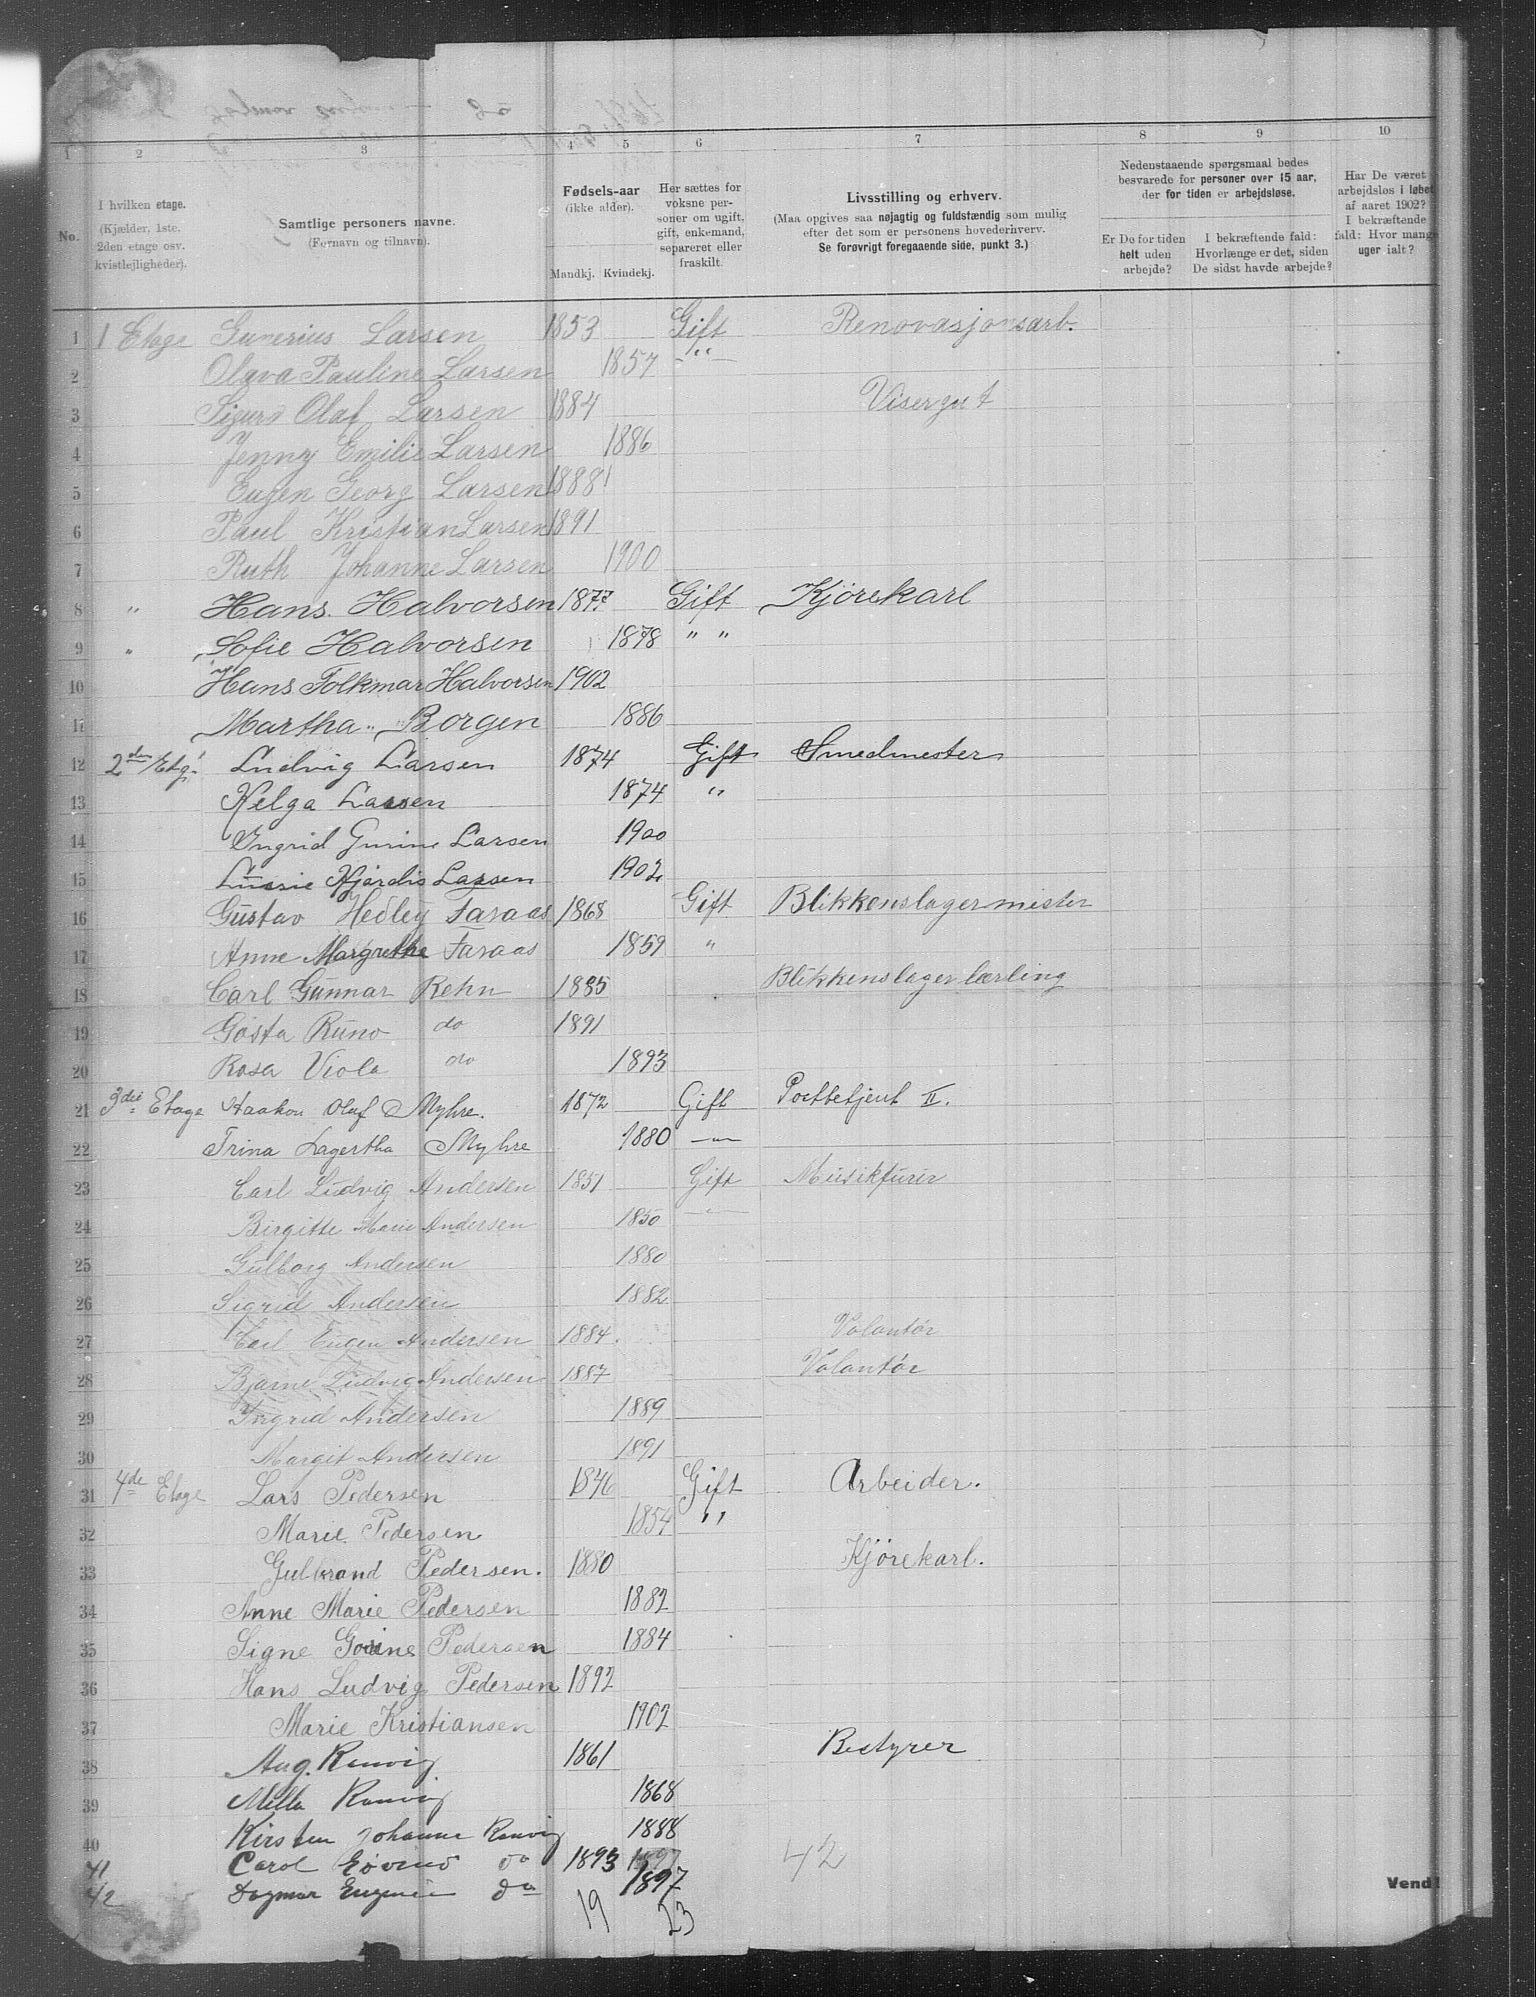 1 2 3 4 5 6 7 8 9 10
No.
I hvilken etage.
(Kjælder, 1ste.
2den etage osv.
kvistlejligheder).
Samtlige personers navne.
(Fornavn og tilnavn).
Fødsels-aar
(ikke alder).
Mandkj. Kvindekj.
Her sættes for
voksne per-
soner om ugift,
gift, enkemand,
separeret eller
fraskilt.
Livsstilling og erhverv.
(Maa opgives saa nøjagtig og fuldstændig som mulig
efter det som er personens hovederhverv.
Se forøvrigt foregaaende side, punkt 3.)
Nedenstaaende spørgsmaal bedes
besvarede for personer over 15 aar,
der for tiden er arbejdsløse.
Er De for tiden
helt uden
arbejde?
I bekræftende fald:
Hvorlænge er det, siden
De sidst havde arbejde?
Har De været
arbejdsløs i løbet
af aaret 1902?
I bekræftende
fald: Hvor mange
uger ialt?
1 1 Etage Gunerius Larsen 1853 Gift Renovasjonsarb.
2 Olava Pauline Larsen 1857 — " —
3 Sigurd Olaf Larsen 1884 Visergut
4 Jenny Emilie Larsen 1886
5 Eugen Georg Larsen 1888
6 Paul Kristian Larsen 1891
7 Ruth Johanne Larsen 1900
8 " Hans Halvorsen 1877 Gift Kjørekarl
9 " Sofie Halvorsen 1878 " "
10 Hans Folkmar Halvorsen 1902
11 Martha Borgen 1886
12 2den Etg. Ludvig Larsen 1874 Gift Smedmester
13 Helga Larsen 1874 "
14 Yngrid Gurine Larsen 1900
15 Hjørdis Larsen 1902
16 Gustav Hedley Faraas 1868 Gift Blikkenslagermister
17 Anne Margrethe Faraas 1859 "
18 Carl Gunnar Rehn 1885 Blikkenslagerlærling
19 Gösta Runo do 1891
20 Rosa Viola do 1893
21 3die Etage Haakon Olaf Myhre. 1872 Gift Postbetjent II.
22 Trina Lagertha Myhre 1880 — " —
23 Carl Ludvig Andersen 1851 Gift Musikfurir
24 Birgitte Marie Andersen 1850 — " —
25 Gulborg Andersen 1880
26 Sigrid Andersen 1882
27 Carl Eugen Andersen 1884. Volontør
28 Bjarne Ludvig Andersen 1887 Volontør
29 Yngrid Andersen 1889
30 Margit Andersen 1891
31 4de Etage Lars Pedersen 1846 Gift Arbeider.
32 Marie Pedersen 1854 "
33 Gulbrand Pedersen. 1880 Kjørekarl.
34 Anne Marie Pedersen 1882
35 Signe Pedersen 1884
36 Hans Ludvig Pedersen 1892
37 Marie Kristiansen 1902
38 Aug. Ranvig 1861 Bestyrer
39 Milla Ranvig 1868
40 Kirsten Johanne Ranvig 1888
41 Carol Eøvind do 1893 1897
42 Dagmar Eugenie do 1897
42
19 23
Vend!